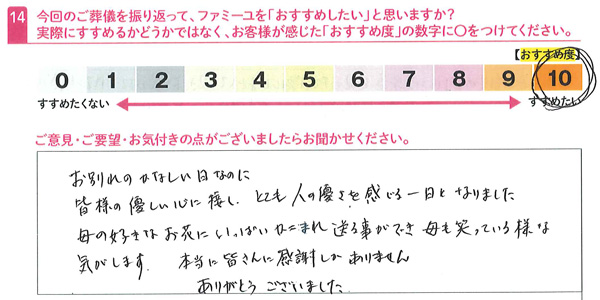 14 今回のご葬儀を振り返って、ファミーユを「おすすめしたい」と思いますか?
実際にすすめるかどうかではなく、お客様が感じた「おすすめ度」の数字に○をつけてください。
【おすすめ度】
0 1 2 3 4 5 6 7 8 9 10
すすめたくない すすめたい
ご意見・ご要望・お気付きの点がございましたらお聞かせください。
お別れのかなしい日なのに
皆様の優しい心に接し とても人の優しさを感じる一日となりました
母の好きなお花にいっぱいかこまれ 送る事ができ 母も笑っている様な
気がします。 本当に皆さんに感謝しかありません
ありがとうございました。